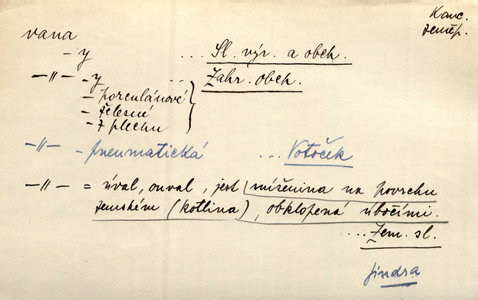 Kanc.
zeměp.
vana
- y ... Sl. výr. a obch.
—„— - y ... Zahr. obch.
- porculánové
- železné
- z plechu
—„— - pneumatická ... Votoček
—„— = úval, ouval, jest mířenina na povrchu
zemském (kotlina), obklopená úbočími.
.... Zem. sl.
jindra